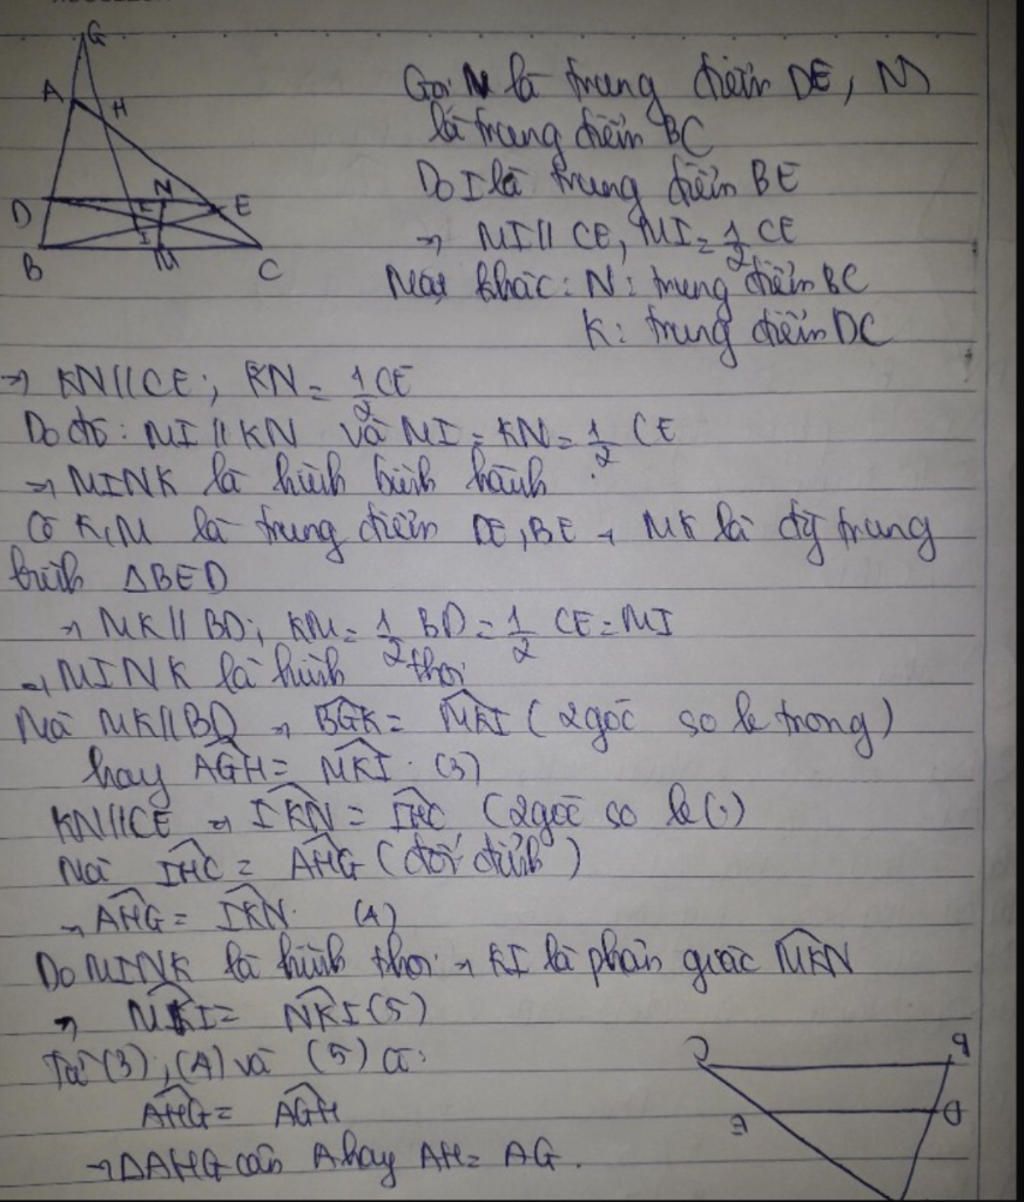 G
A
H
N
D
E
I
B
M
C
Gọi N là trung điểm DE, M
là trung điểm BC
Do I là trung điểm BE
→ MI // CE, MI = 1/2 CE
Mặt khác: N: trung điểm BC
K: trung điểm DC
→ KN // CE; KN = 1/2 CE
Do đó: MI // KN và MI = KN = 1/2 CE
→ MINK là hình bình hành
Có K, M là trung điểm DE, BE → MK là đg trung
bình ΔBED
→ MK // BD; KM = 1/2 BD = 1/2 CE = MI
→ MINK là hình thoi
Mà MK // BD → BGK = MKI (2 góc so le trong)
hay AGH = MKI. (3)
KN // CE → IKN = IHC (2 góc so le (.)
Mà IHC = AHG (đối đỉnh)
→ AHG = IKN. (4)
Do MINK là hình thoi → KI là phân giác MKN
→ MKI = NKI (5)
Từ (3), (4) và (5) có:
AHG = AGH
→ ΔAHG cân A hay AH = AG.
C
B
E
D